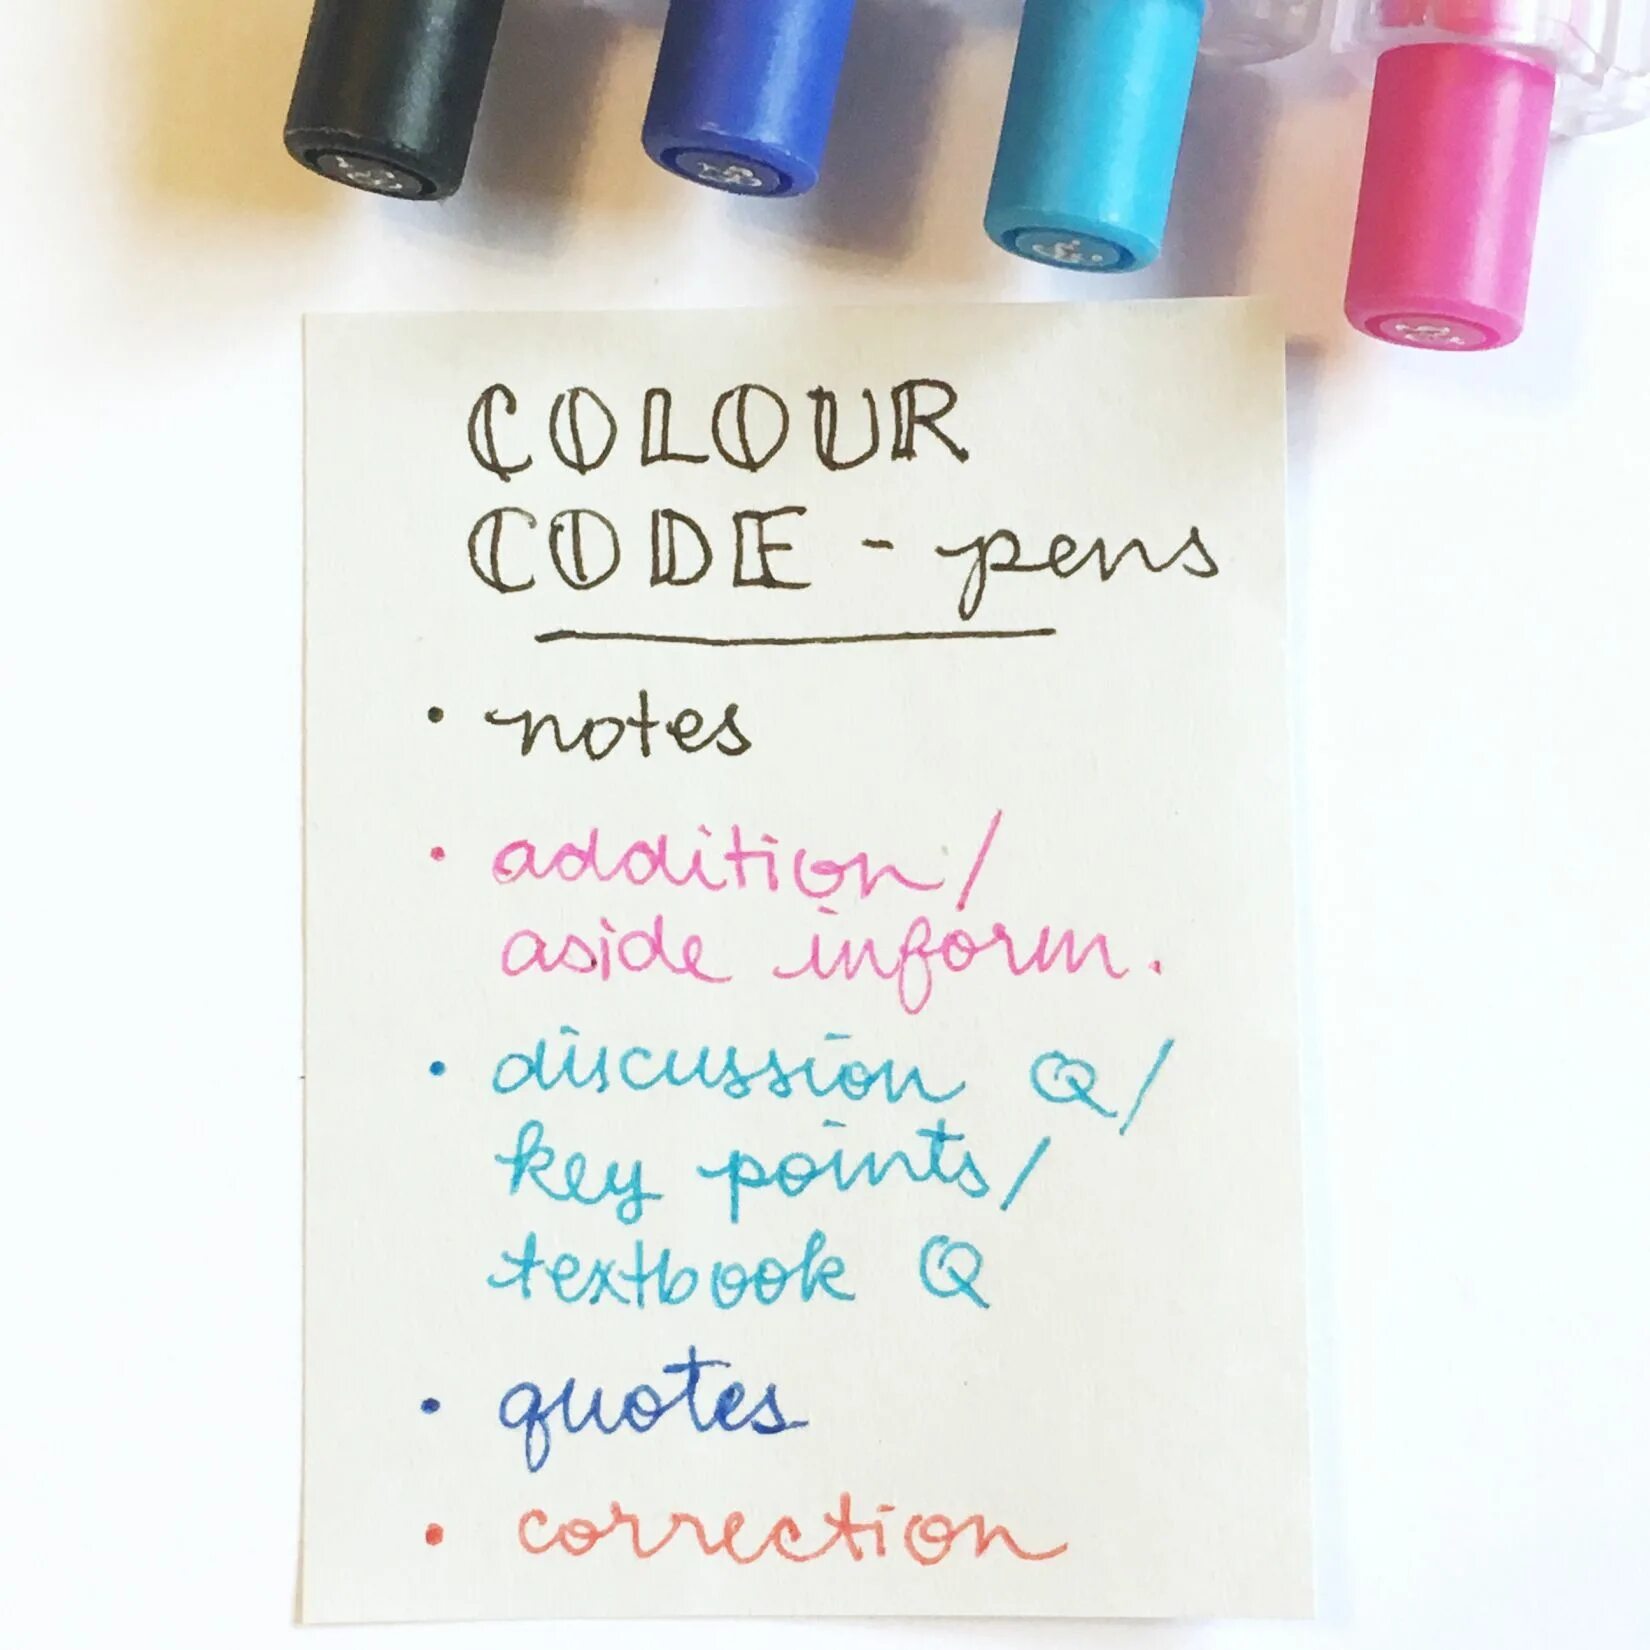 COLOUR
CODE - pens
• notes
• addition/
aside inform.
• discussion Q/
key points/
textbook Q
• quotes
• correction